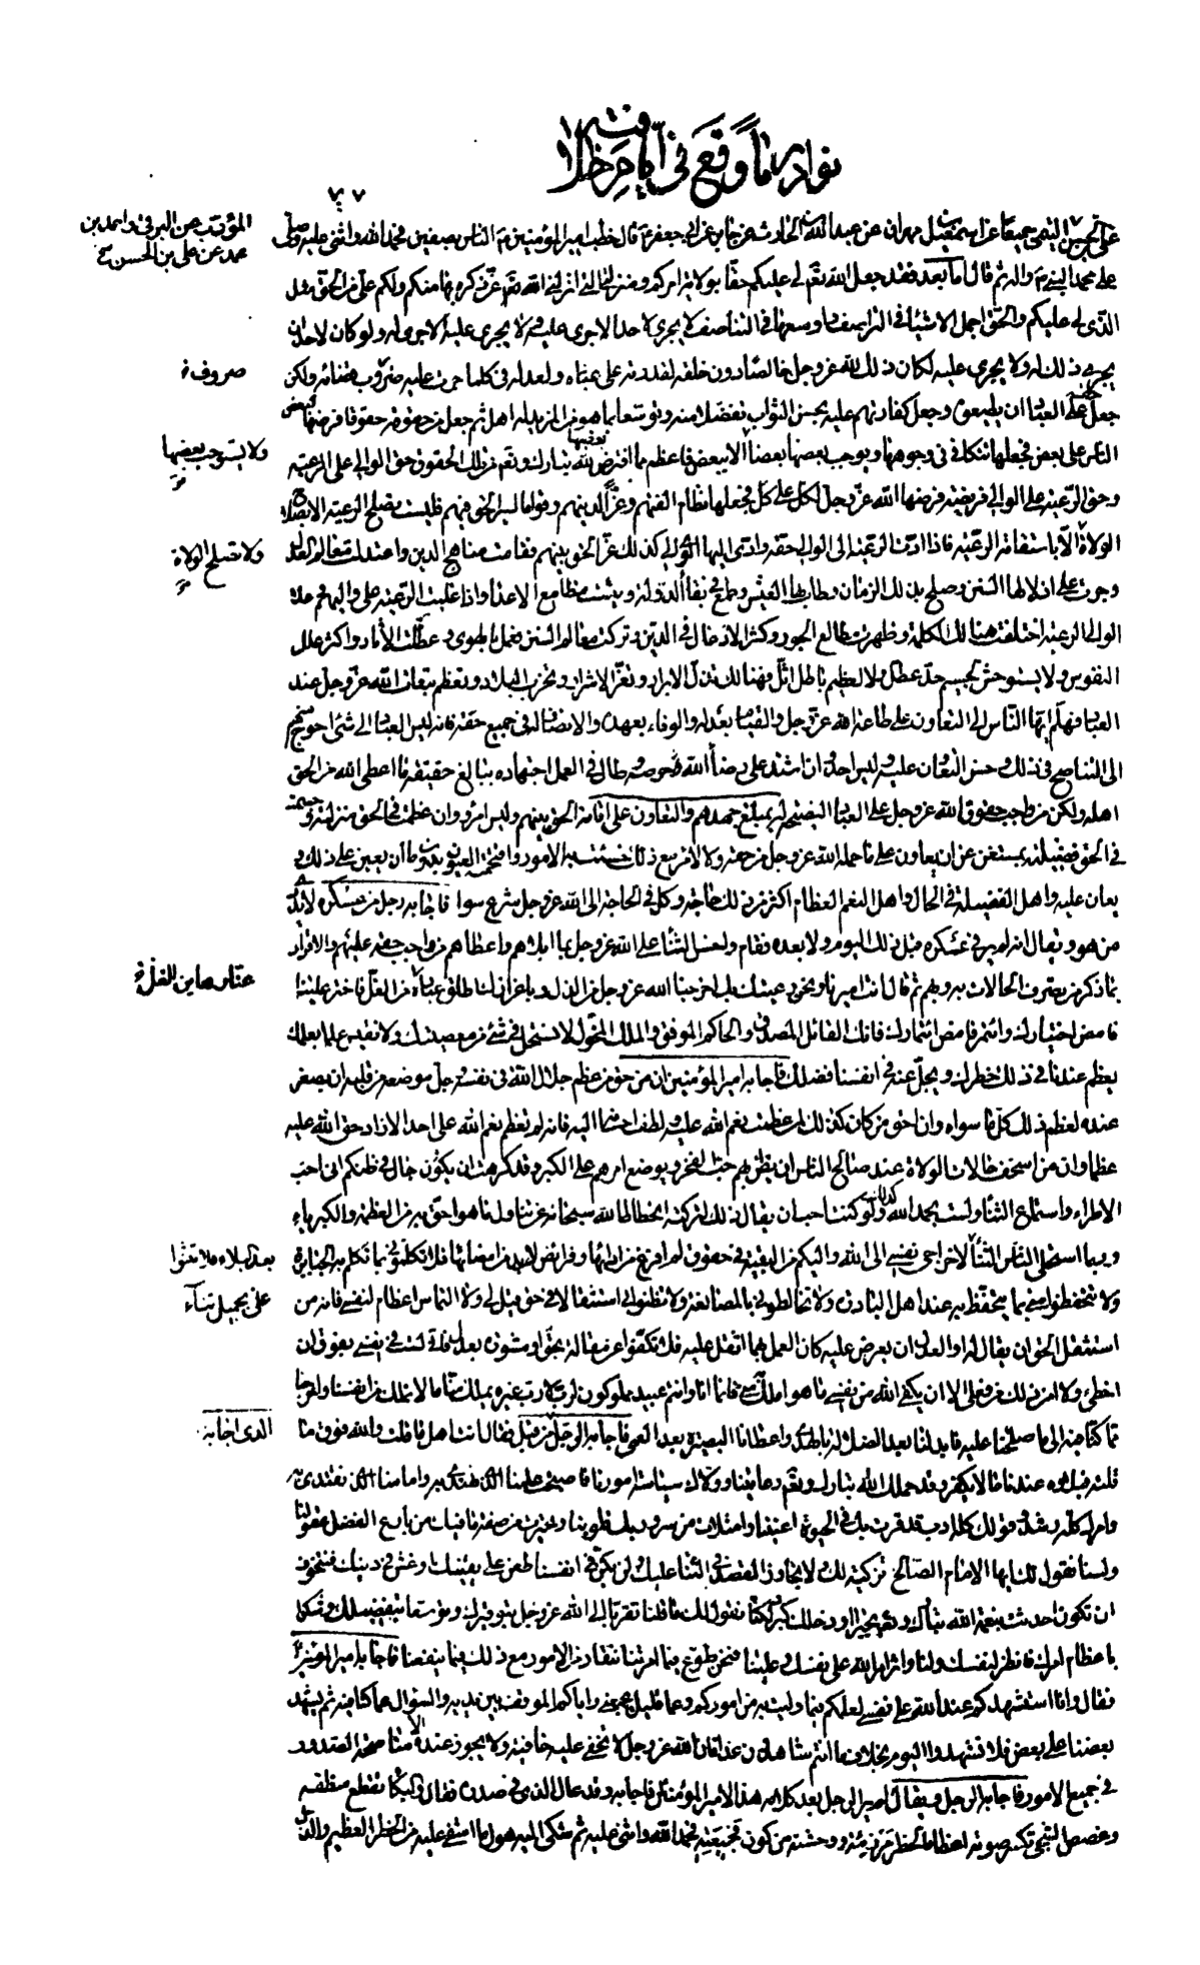 نوادر ما وقع في أيام خلافته
علي بن الحسن التيمي جميعا عن اسمعيل بن مهران عن عبد الله بن الحارث عن جابر عن أبي جعفر ع قال خطب أمير المؤمنين ع الناس بصفين فحمد الله واثنى عليه وصلى
على محمد النبي ص واله ثم قال اما بعد فقد جعل الله تعالى لي عليكم حقا بولاية امركم ومنزلتي التي انزلني الله تعالى عز ذكره بها منكم ولكم علي من الحق مثل
الذي لي عليكم والحق اجمل الاشياء في التواصف واوسعها في التناصف لا يجري لاحد الا جرى عليه ولا يجري عليه الا جرى له ولو كان لاحد ان
يجري ذلك له ولا يجري عليه لكان ذلك لله عز وجل خالصا دون خلقه لقدرته على عباده ولعدله في كلما جرت عليه ضروب قضائه ولكن
جعل حقه على العباد ان يطيعوه وجعل كفارتهم عليه بحسن الثواب تفضلا منه وتوسعا بما هو من المزيد له اهل ثم جعل من حقوقه حقوقا فرضها لبعض
الناس على بعض فجعلها تتكافى في وجوهها ويوجب بعضها بعضا الا ببعض فاعظم مما افترض الله تبارك وتعالى من تلك الحقوق حق الوالي على الرعية
وحق الرعية على الوالي فريضة فرضها الله عز وجل لكل على كل فجعلها نظام الفتهم وعزا لدينهم وقواما لسير الحق فيهم فليست تصلح الرعية الا بصلاح
الولاة الا باستقامة الرعية فاذا ادت الرعية الى الوالي حقه وادى اليها الوالي كذلك عز الحق بينهم فقامت مناهج الدين واعتدلت معالم العدل
وجرت على اذلالها السنن وصلح بذلك الزمان وطاب بها العيش وطمع في بقاء الدولة ويئست مطامع الاعداء واذا غلبت الرعية على واليهم وعلا
الوالي الرعية اختلفت هنالك الكلمة وظهرت مطالع الجور وكثر الادغال في الدين وتركت معالم السنن فعمل بالهوى وعطلت الاثار واكثر علل
النفوس ولا يستوحش لجسيم حد عطل ولا لعظيم باطل اثل فهنالك تذل الابرار وتعز الاشرار وتخرب البلاد وتعظم تبعات الله عز وجل عند
العباد فهلم ايها الناس الى التعاون على طاعة الله عز وجل والقيام بعدله والوفاء بعهده والانصاف له في جميع حقه فانه ليس العباد الى شئ احوج منهم
الى التناصح في ذلك وحسن التعاون عليه وليس احد وان اشتد على رضاء الله حرصه وطال في العمل اجتهاده ببالغ حقيقة ما اعطى الله من الحق
اهله ولكن من واجب حقوق الله عز وجل على العباد النصيحة له بمبلغ جهدهم والتعاون على اقامة الحق بينهم وليس امرؤ وان عظمت في الحق منزلته وجسمت
في الحق فضيلته بمستغن عن ان يعاون على ما حمله الله عز وجل من حقه ولا لامرئ مع ذلك خسئت به الامور واقتحمته العيون بدون ما ان يعين على ذلك و
يعان عليه واهل الفضيلة في الحال واهل النعم العظام اكثر في ذلك حاجة وكل في الحاجة الى الله عز وجل شرع سواء فاجابه رجل من عسكره لا يدرى
من هو ويقال انه لم ير في عسكره قبل ذلك اليوم ولا بعده فقام واحسن الثناء على الله عز وجل بما ابلاهم واعطاهم من واجب حقه عليهم والاقرار
بما ذكر من تصرف الحالات به وبهم ثم قال انت اميرنا ونحن رعيتك بك اخرجنا الله عز وجل من الذل وباعزازك اطلق عباده من الغل فاختر علينا
فامض اختيارك وائتمر فامض ائتمارك فانك القائل المصدق والحاكم الموفق والملك المخول لا نستحل في شئ من معصيتك ولا نقيس علما بعلمك
يعظم عندنا في ذلك خطرك ويجل عنه في انفسنا فضلك فاجابه أمير المؤمنين ان من حق من عظم جلال الله في نفسه وجل موضعه من قلبه ان يصغر
عنده لعظم ذلك كل ما سواه وان احق من كان كذلك لمن عظمت نعم الله عليه ولطف احسانه اليه فانه لم تعظم نعم الله على احد الا زاد حق الله عليه
عظما وان من اسخف حالات الولاة عند صالح الناس ان يظن بهم حب الفخر ويوضع امرهم على الكبر وقد كرهت ان يكون جال في ظنكم اني احب
الاطراء واستماع الثناء ولست بحمد الله كذلك ولو كنت احب ان يقال ذلك لتركته انحطاطا لله سبحانه عن تناول ما هو احق به من العظمة والكبرياء
وربما استحلى الناس الثناء لاخراجي نفسي الى الله واليكم من البقية في حقوق لم افرغ من ادائها وفرائض لا بد من امضائها فلا تكلموني بما تكلم به الجبابرة
ولا تتحفظوا مني بما يتحفظ به عند اهل البادرة ولا تخالطوني بالمصانعة ولا تظنوا بي استثقالا في حق قيل لي ولا التماس اعظام لنفسي فانه من
استثقل الحق ان يقال له او العدل ان يعرض عليه كان العمل بهما اثقل عليه فلا تكفوا عن مقالة بحق او مشورة بعدل فاني لست في نفسي بفوق ان
اخطئ ولا امن ذلك من فعلي الا ان يكفي الله من نفسي ما هو املك به مني فانما انا وانتم عبيد مملوكون لرب لا رب غيره يملك منا ما لا نملك من انفسنا واخرجنا
مما كنا فيه الى ما صلحنا عليه فابدلنا بعد الضلالة بالهدى واعطانا البصيرة بعد العمى فاجابه الرجل من قبل فقال انت اهل ما قلت والله فوق ما
قلته فبلاؤه عندنا ما لا يكفر وقد حملك الله تبارك وتعالى رعايتنا وولاك سياسة امورنا فاصبحت علمنا الذي نهتدي به وامامنا الذي نقتدي به
وامرك كله رشد وقولك كله ادب قد قرت بك في الحيوة اعيننا وامتلات من سرور بك قلوبنا وتحيرت من صفة ما فيك من بارع الفضل عقولنا
ولسنا نقول لك ايها الامام الصالح تزكية لك ولا نجاوز القصد في الثناء عليك ولن يكن في انفسنا طعن على يقينك او غش في دينك فنتخوف
ان تكون احدثت بنعمة الله تبارك وتعالى تجبرا او دخلك كبر ولكنا نقول لك ما قلنا تقربا الى الله عز وجل بتوقيرك وتوسعا بتفضيلك وشكرا
باعظام امرك فانظر لنفسك ولنا واثر امر الله على نفسك وعلينا فنحن طوع فيما امرتنا ننقاد من الامور مع ذلك فيما ينفعنا فاجابه امير المؤمنين ع
فقال وانا استشهدكم عند الله على نفسي لعلمكم فيما وليت به من اموركم وعما قليل يجمعني واياكم الموقف بين يديه والسؤال عما كنا فيه ثم يشهد
بعضنا على بعض فلا تشهدوا اليوم بخلاف ما انتم شاهدون غدا فان الله عز وجل لا يخفى عليه خافية ولا يجوز عنده الا مناصحة الصدور
في جميع الامور فاجابه الرجل ويقال لم ير الرجل بعد كلامه هذا لامير المؤمنين فاجابه وقد عال الذي في صدره فقال والبكاء تقطع منطقه
وغصص الشجى تكسر صوته اعظاما لخطر مرزئته ووحشة من كون فجيعته فحمد الله واثنى عليه ثم شكى اليه هول ما اشفى عليه من الخطر العظيم والذل
المؤدب عن البرقي واحمد بن
محمد عن علي بن الحسن
صروف
ولا يستوجب بعضها
ولا تصلح الولاة
عباده من الغل
بعد البلاء فلا تثنوا
علي بجميل ثناء
الذي اجابه